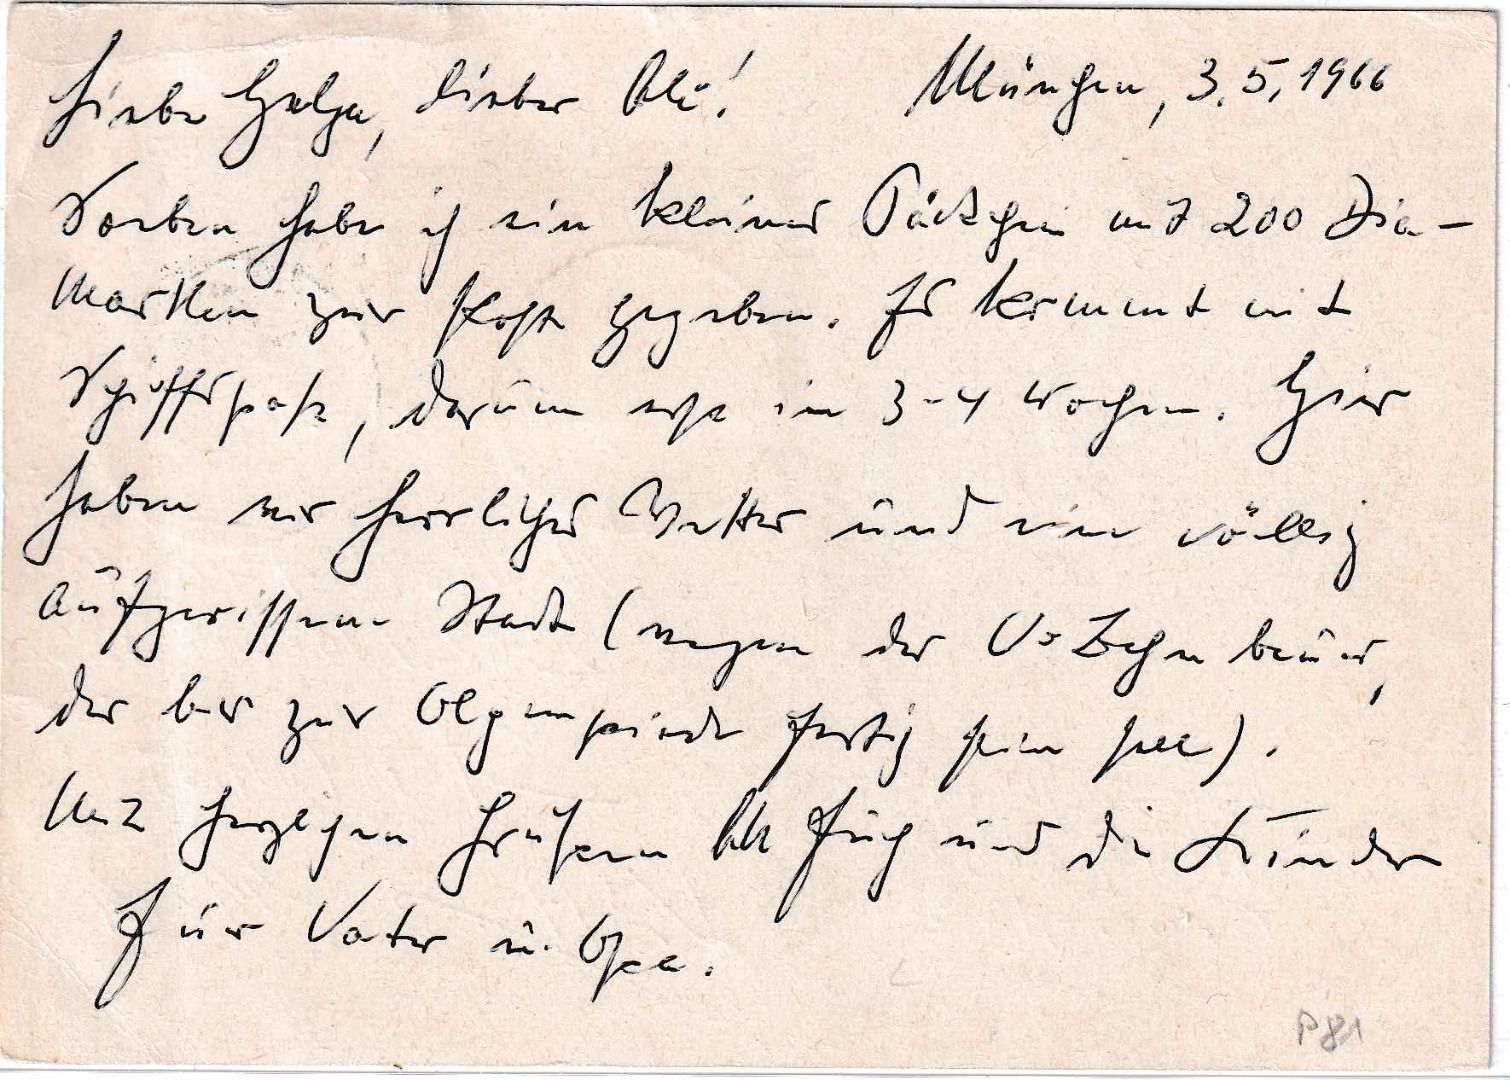 Liebe Helga, lieber Uli! München, 3.5.1966
Soeben habe ich ein kleines Päckchen mit 200 Dia-
Marken zur Post gegeben. Es kommt mit
Schiffspost, darum erst in 3-4 Wochen. Hier
haben wir herrliches Wetter und eine völlig
aufgerissene Stadt (wegen der U=Bahn bauer,
der bis zur Olympiade fertig sein soll).
Mit herzlichen Grüßen an Euch und die Kinder
Euer Vater u. Opa.
P 81